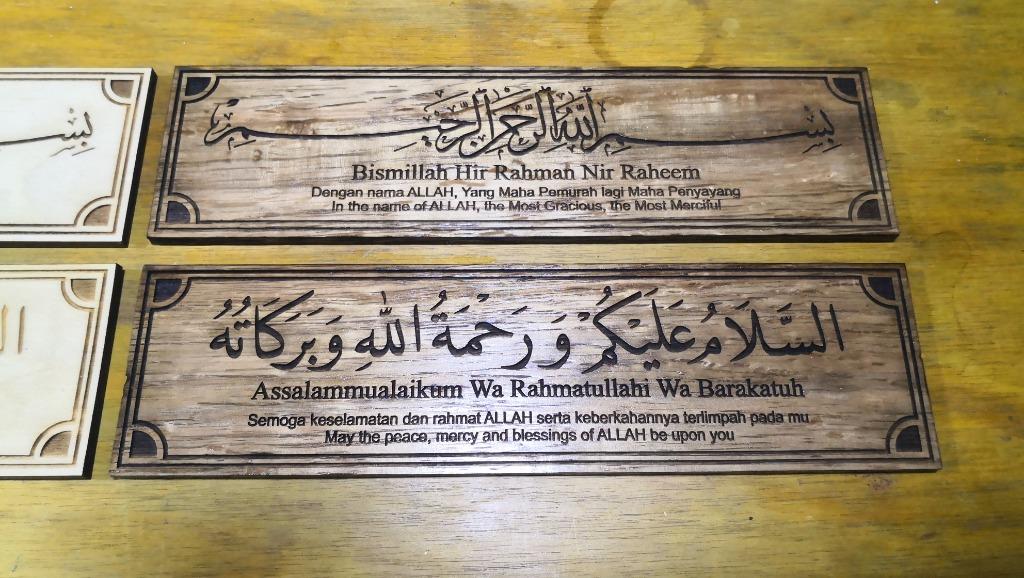 بِسْمِ اللَّهِ الرَّحْمَٰنِ الرَّحِيمِ
Bismillah Hir Rahman Nir Raheem
Dengan nama ALLAH, Yang Maha Pemurah lagi Maha Penyayang
In the name of ALLAH, the Most Gracious, the Most Merciful
بِسْمِ
السَّلَامُ عَلَيْكُمْ وَرَحْمَةُ اللهِ وَبَرَكَاتُهُ
Assalammualaikum Wa Rahmatullahi Wa Barakatuh
Semoga keselamatan dan rahmat ALLAH serta keberkahannya terlimpah pada mu
May the peace, mercy and blessings of ALLAH be upon you